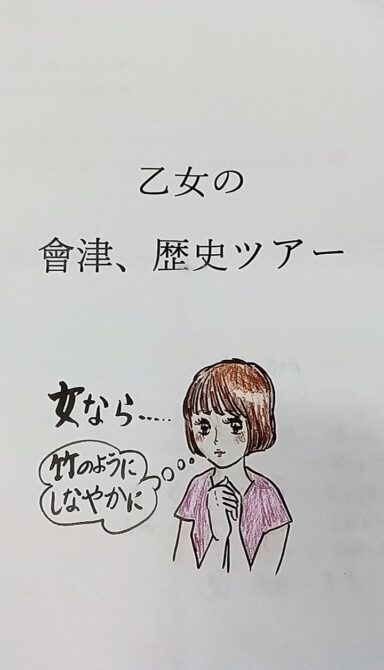 乙女の
會津、歴史ツアー
女なら……
竹のように
しなやかに